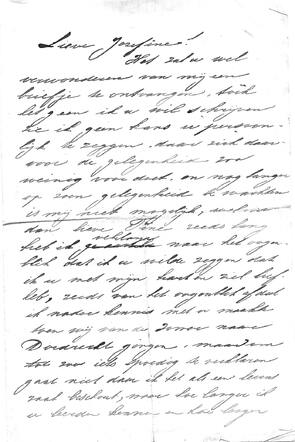 Lieve Josefine!
Het zal u wel
verwonderen van mij een
briefje te ontvangen, doch
het geen ik u wil schrijven
zie ik geen kans u persoon-
lijk te zeggen. daar zich daar
voor de gelegenheid zoo
weinig voor doet. en nog langer
op zoon gelegenheid te wachten
is mij niet mogelijk,
dan lieve Fine reeds lang
heb ik verlangd naar het oogen-
blik dat ik u wilde zeggen dat
ik u met mijn hart en ziel lief
heb, reeds van het oogenblik af dat
ik nader kennis met u maakte
toen wij van de naar
Dordrecht gingen. maar om
tot zoo iets spoedig te verklaren
gaat niet daar ik het als een levens
zaak beschout, maar hoe langer ik
u leerde kennen en hoe langer